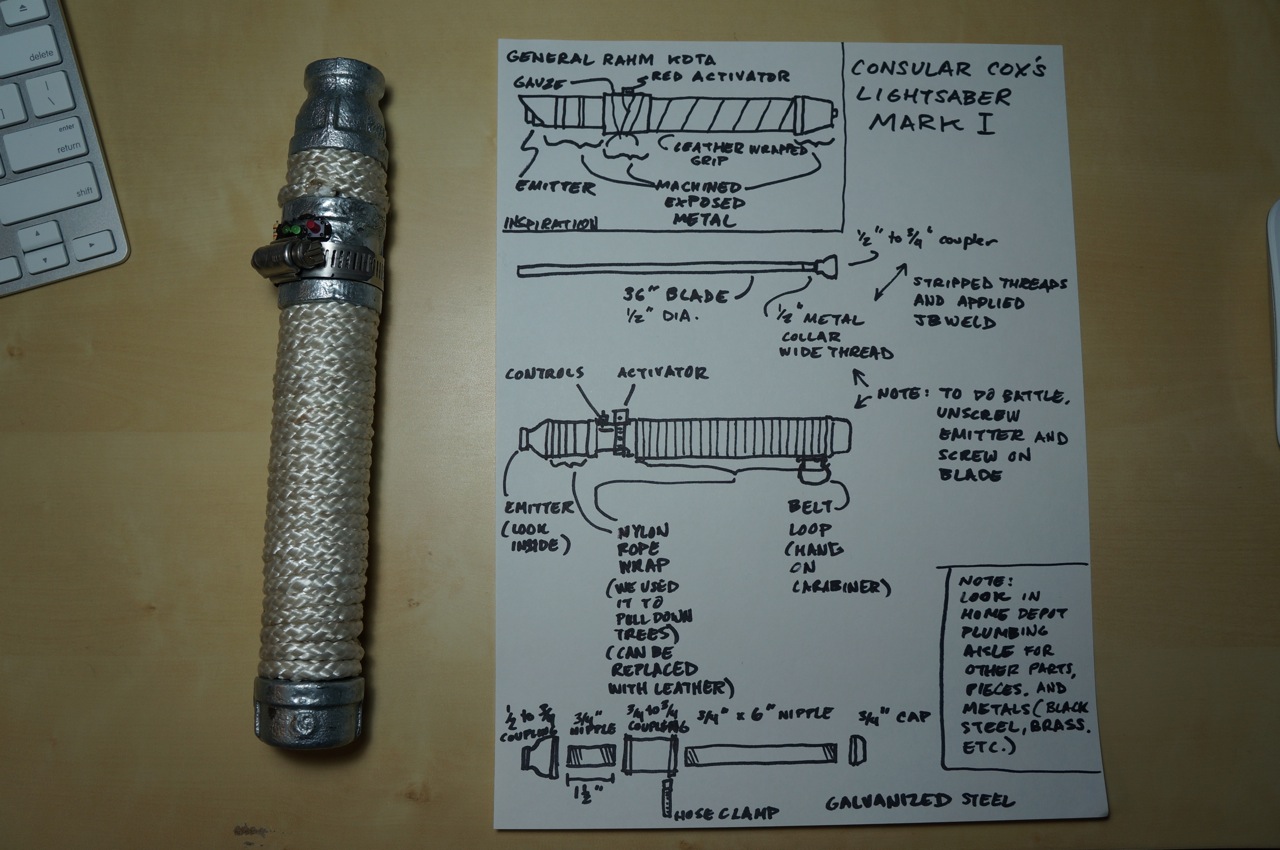 delete
enter
return
shift
GENERAL RAHM KOTA
GAUZE
RED ACTIVATOR
(LEATHER WRAPPED
GRIP
EMITTER
MACHINED
EXPOSED
METAL
INSPIRATION
CONSULAR COX'S
LIGHTSABER
MARK I
1/2" to 3/4" coupler
36" BLADE
1/2" DIA.
1/2" METAL
COLLAR
WIDE THREAD
STRIPPED THREADS
AND APPLIED
JB WELD
NOTE: TO DO BATTLE,
UNSCREW
EMITTER AND
SCREW ON
BLADE
CONTROLS
ACTIVATOR
EMITTER
(LOOK
INSIDE)
NYLON
ROPE
WRAP
(WE USED
IT TO
PULL DOWN
TREES)
(CAN BE
REPLACED
WITH LEATHER)
BELT
LOOP
(HANG
ON
CARABINER)
NOTE:
LOOK IN
HOME DEPOT
PLUMBING
AISLE FOR
OTHER PARTS,
PIECES, AND
METALS (BLACK
STEEL, BRASS.
ETC.)
1/2 to 3/4
COUPLING
3/4"
NIPPLE
1 1/2"
3/4 to 3/4
COUPLING
3/4" x 6" NIPPLE
3/4" CAP
HOSE CLAMP
GALVANIZED STEEL